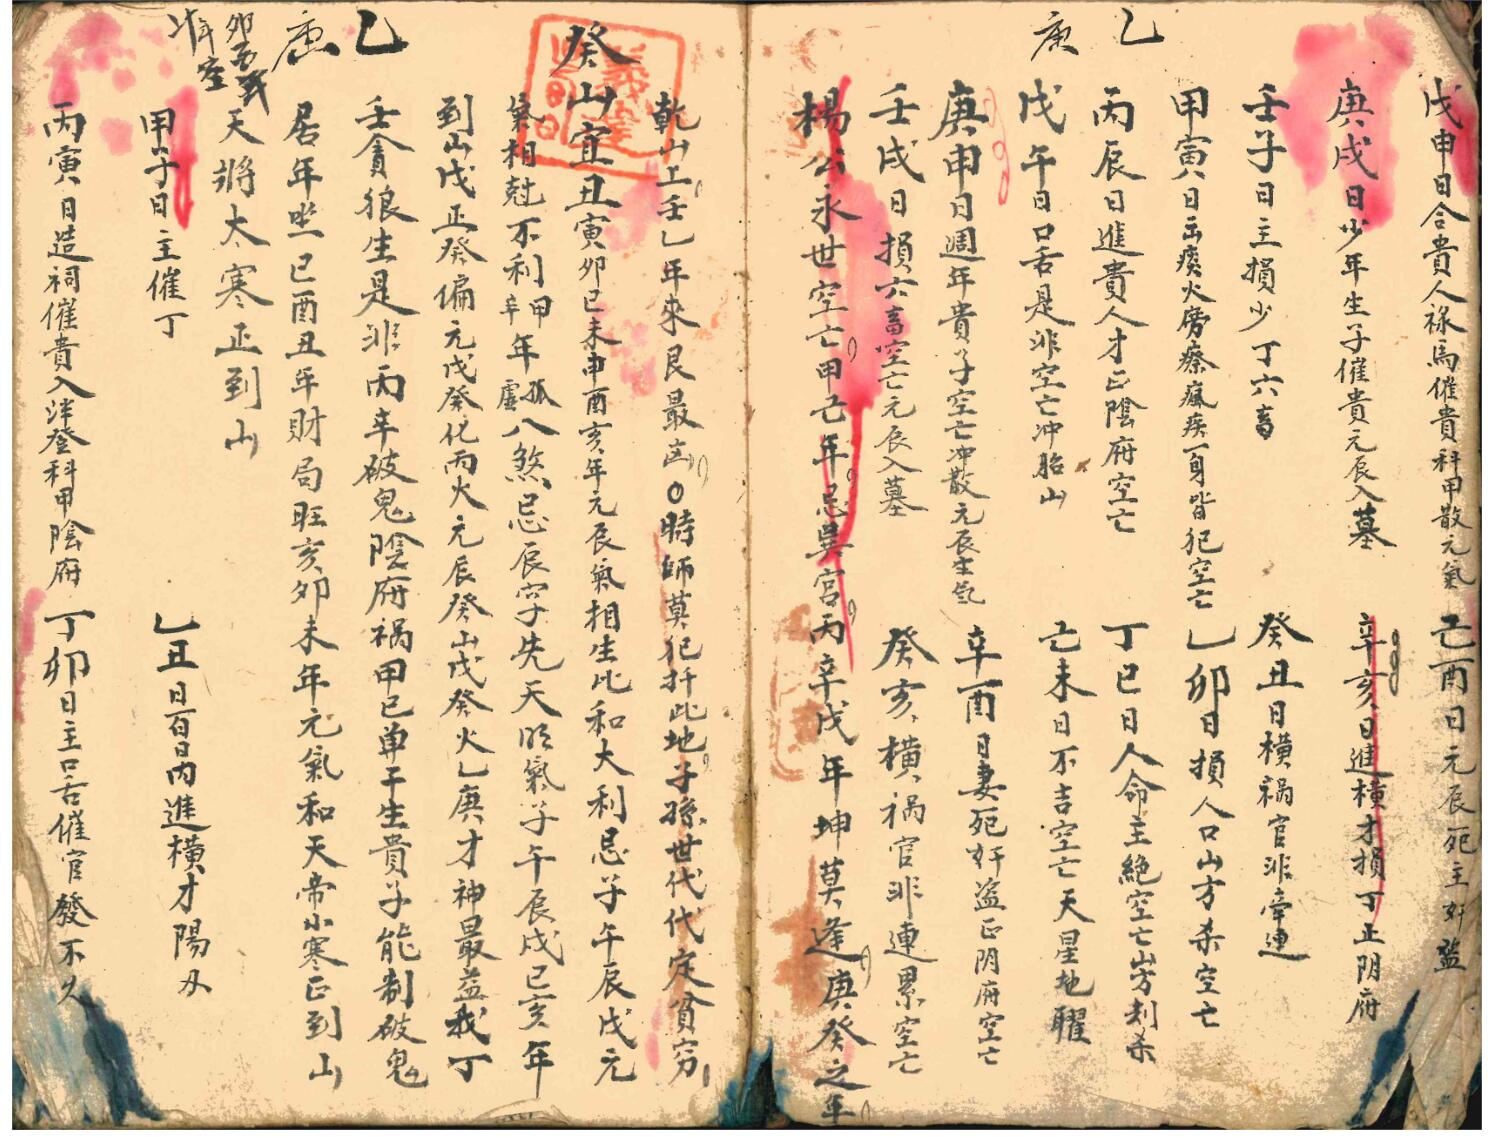 乙
庚
戊申日合貴人祿馬催貴科甲散元氣 己酉日元辰死主奸盜
庚戌日少年生子催貴元辰入墓 辛亥日進橫才損丁正阴府
壬子日主損少丁六畜 癸丑日橫祸官非牽連
甲寅日瘟火癆瘵瘋疾一身皆犯空亡 乙卯日損人口山方杀空亡
丙辰日進貴人才正陰府空亡 丁巳日人命主絶空亡山方刺杀
戊午日口舌是非空亡冲胎山 己未日不吉空亡天星地曜
庚申日週年貴子空亡冲散元辰生気 辛酉日妻死奸盗正阴府空亡
壬戌日損六畜空亡元辰入墓 癸亥橫祸官非連累空亡
楊公永世空亡甲己年忌巽宮丙辛戊年坤莫逢庚癸之年
乾山上壬乙年來艮最凶○時師莫犯扦此地子孫世代代定貧穷
癸山宜丑寅卯巳未申酉亥年元辰氣相生比和大利忌子午辰戌元
氣相尅不利甲辛年孤虛八煞忌辰字先天氣子午辰戌巳亥年
到山戊正癸偏元戊癸化丙火元辰癸山戊癸火乙庚才神最益我丁
壬貪狼生是非丙辛破鬼陰府祸甲巳单干生貴子能制破鬼
居年坐巳酉丑年財局旺亥卯未年元氣和天帝小寒正到山
天將大寒正到山
乙
庚
甲子日主催丁 乙丑日百日內進橫才陽刃
丙寅日造祠催貴入泮登科甲陰府 丁卯日主口舌催官發不久